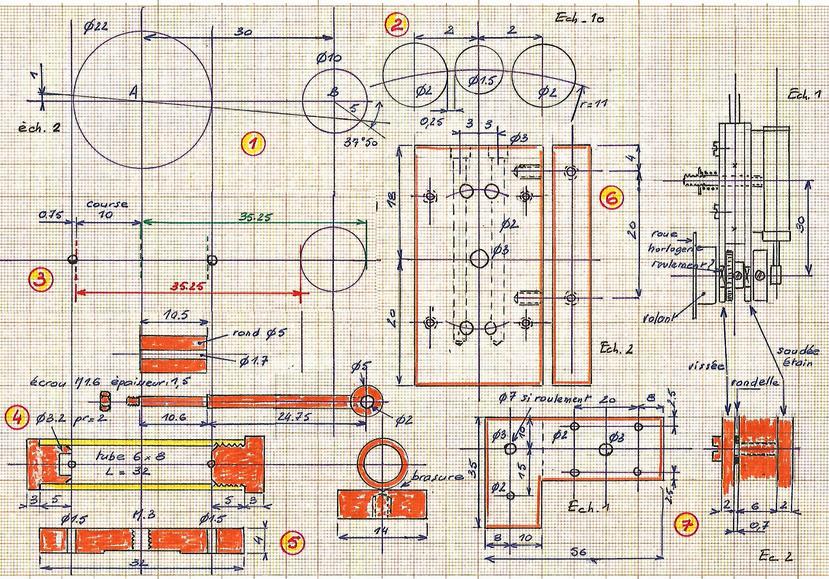 Ø22
30
2
Ech. 10
2
2
Ø10
A
B
Ø2
Ø1.5
Ø2
1
éch. 2
1
5
37°50
0,25
r=11
3
3
Ø3
Ech. 1
4
18
6
Ø2
20
30
Ø3
course
0.75
10
35.25
3
35.25
roue
horlogerie
roulement?
volant
20
Ech. 2
10.5
rond Ø5
Ø1.7
vissée
soudée
étain
rondelle
écrou M1.6 épaisseur 1,5
Ø5
10.6
24.75
Ø2
4
Ø3.2 pr=2
tube 6 x 8
L = 32
3
5
5
3
brasure
Ø7 si roulement
20
8
2,5
Ø3
10
Ø2
Ø3
35
15
Ø2
Ech. 1
2,5
8
10
56
7
2
6
2
0,7
Ec. 2
Ø1.5
M.3
Ø1.5
5
4
32
14